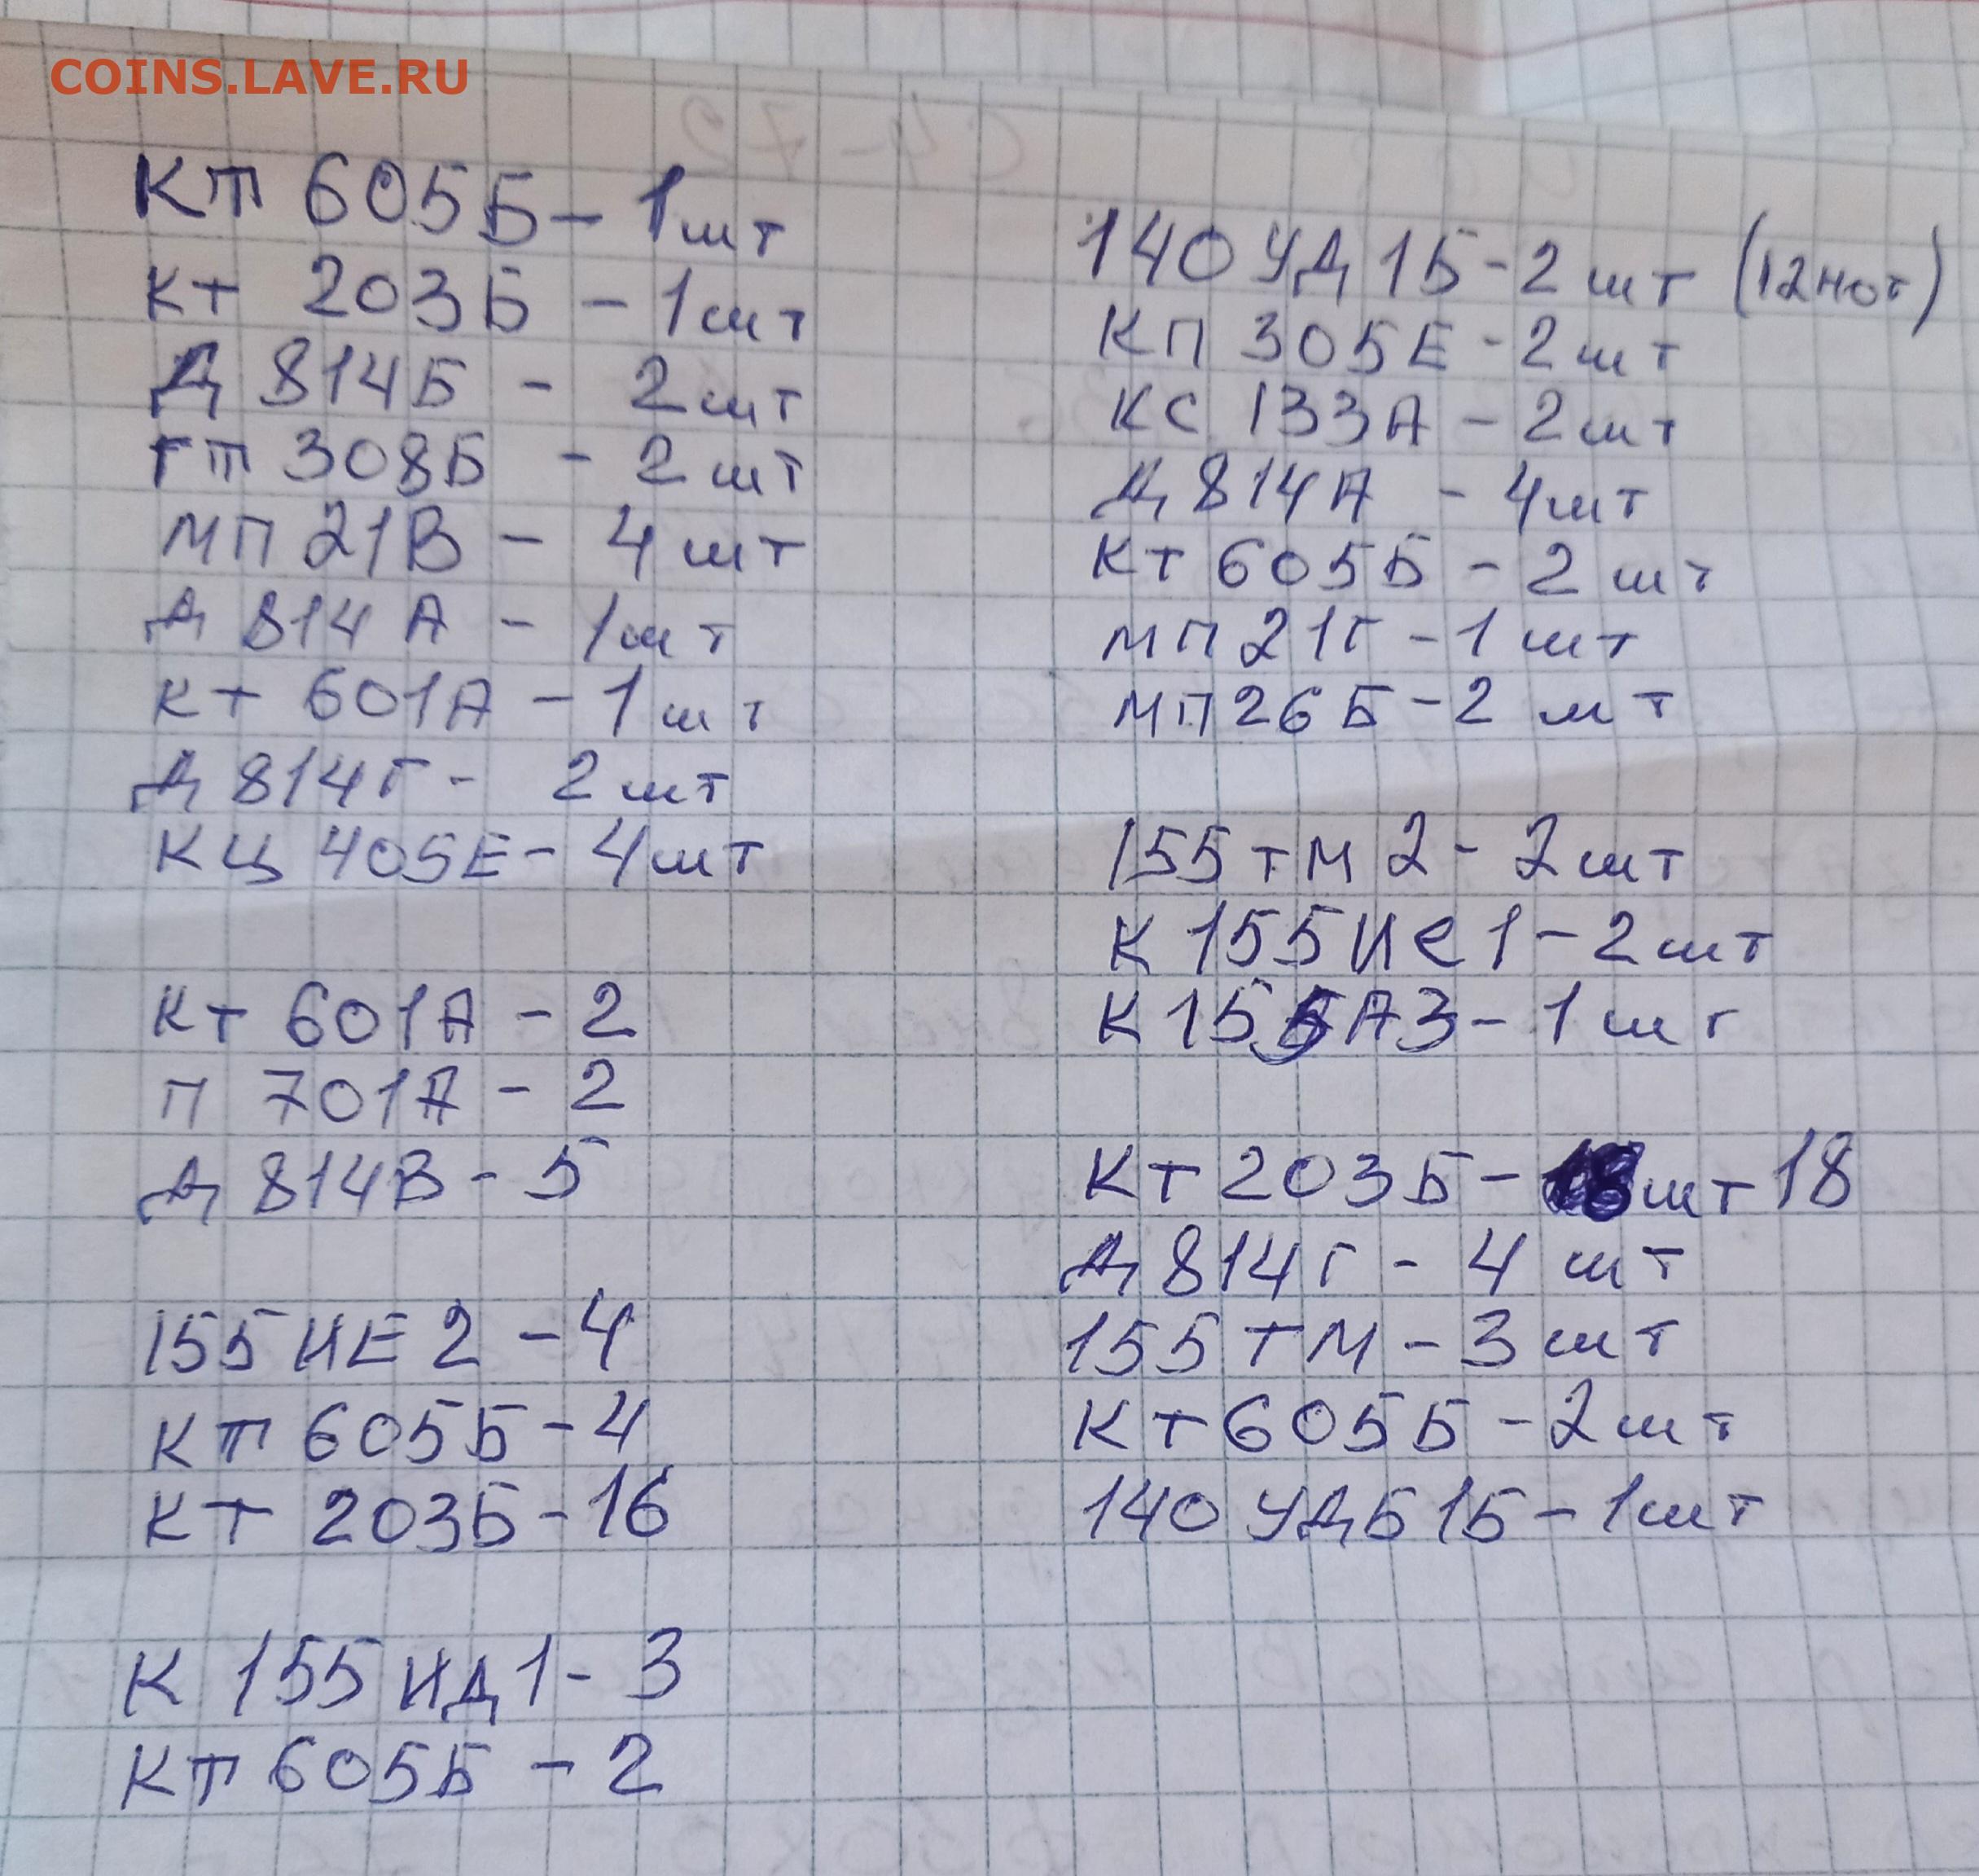 COINS.LAVE.RU
КТ 605Б - 1шт
КТ 203Б - 1шт
Д 814Б - 2шт
ГТ 308Б - 2шт
МП 21В - 4 шт
Д 814 А - 1шт
КТ 601А - 1шт
Д 814Г - 2шт
КЦ 405Е - 4шт
КТ 601А - 2
П 701А - 2
Д 814В - 5
155 ИЕ 2 - 4
КТ 605Б - 4
КТ 203Б - 16
К 155 ИД1 - 3
КТ 605Б - 2
140 УД 1Б - 2 шт (12 ног)
КП 305Е - 2шт
КС 133А - 2шт
Д 814А - 4шт
КТ 605Б - 2 шт
МП 21Г - 1 шт
МП 26Б - 2 шт
155 ТМ 2 - 2шт
К 155 ИЕ 1 - 2шт
К 155 А3 - 1 шт
КТ 203Б - шт 18
Д 814Г - 4 шт
155 ТМ - 3 шт
КТ 605Б - 2шт
140 УДБ 1Б - 1шт